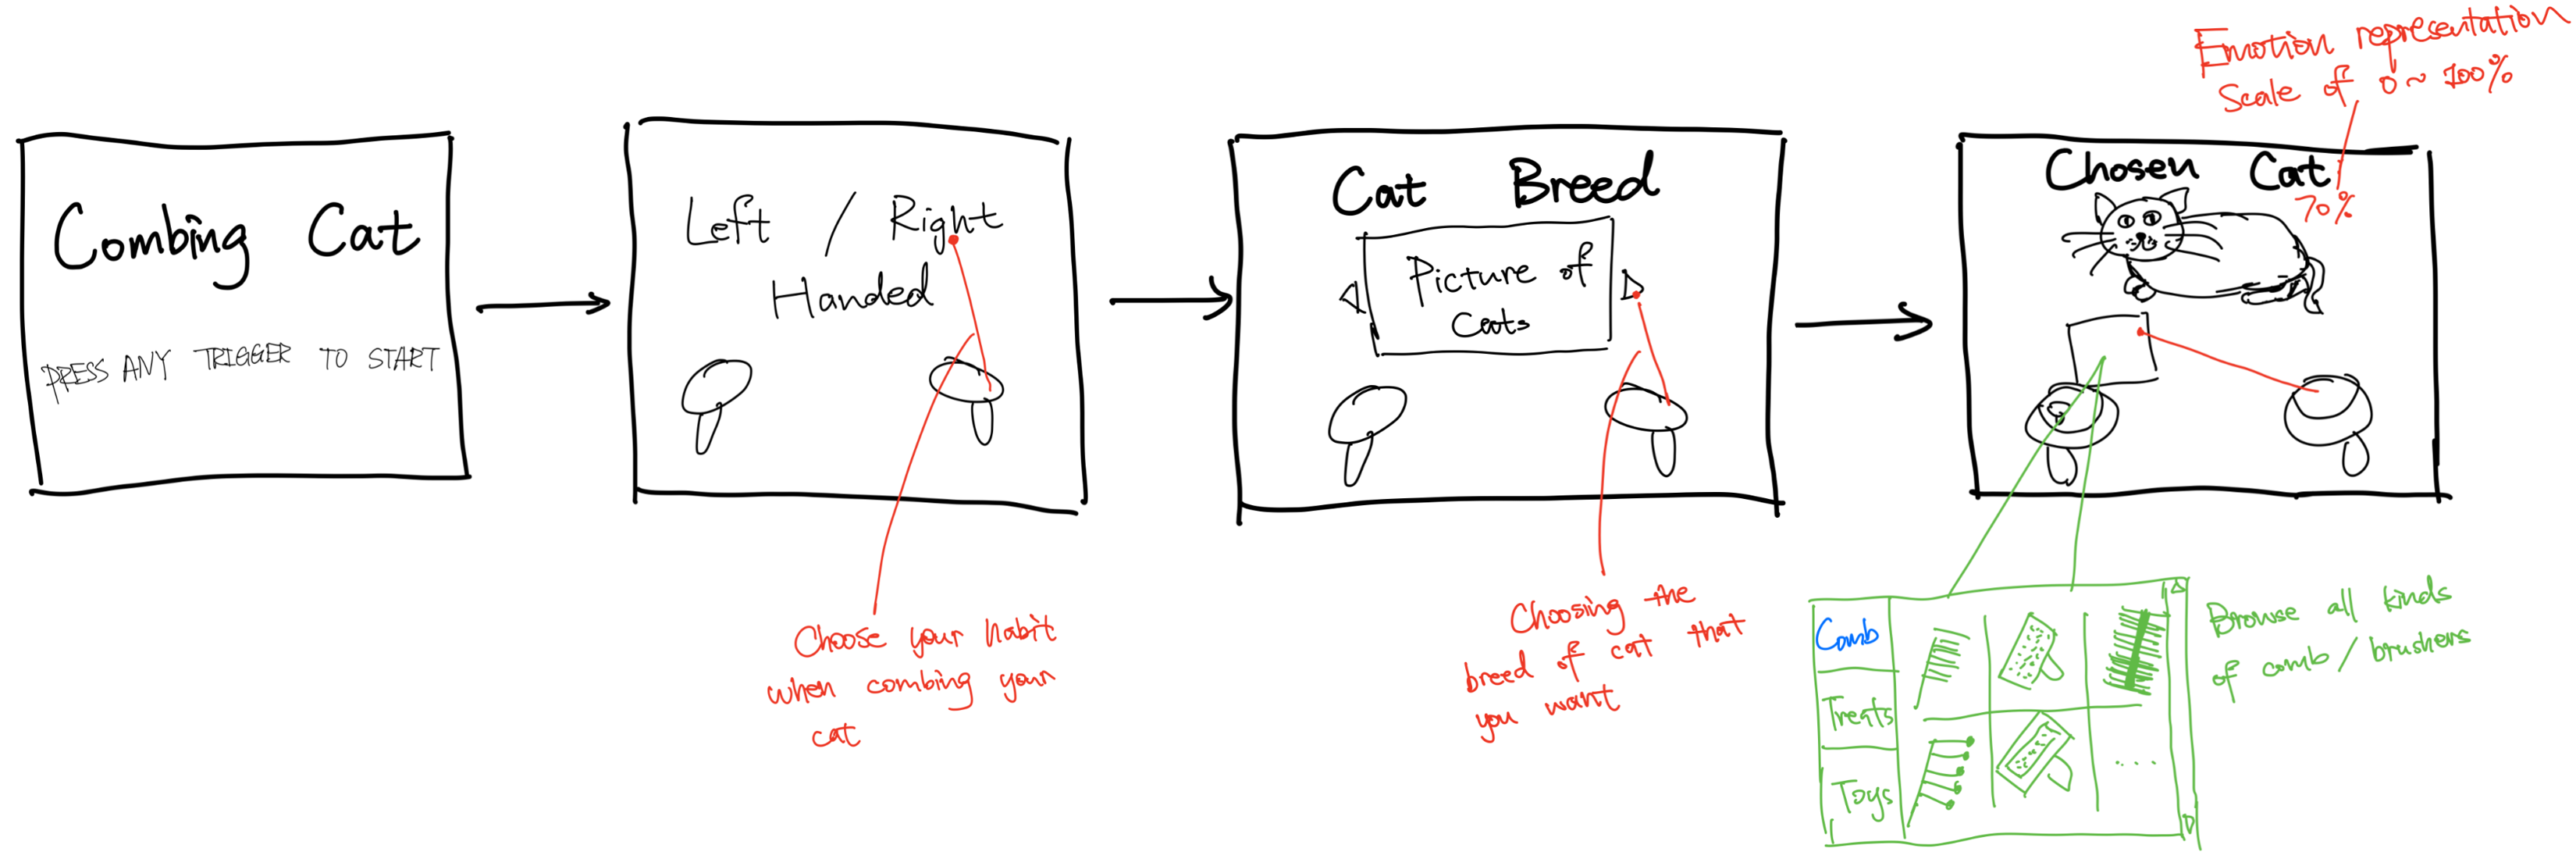 Combing Cat
PRESS ANY TRIGGER TO START
Left / Right
Handed
Choose your habit
when combing your
cat
Cat Breed
Picture of
Cats
Choosing the
breed of cat that
you want
Emotion representation
Scale of 0~100%
Chosen Cat
70%
Comb
Treats
Toys
....
Browse all kinds
of comb/brushers